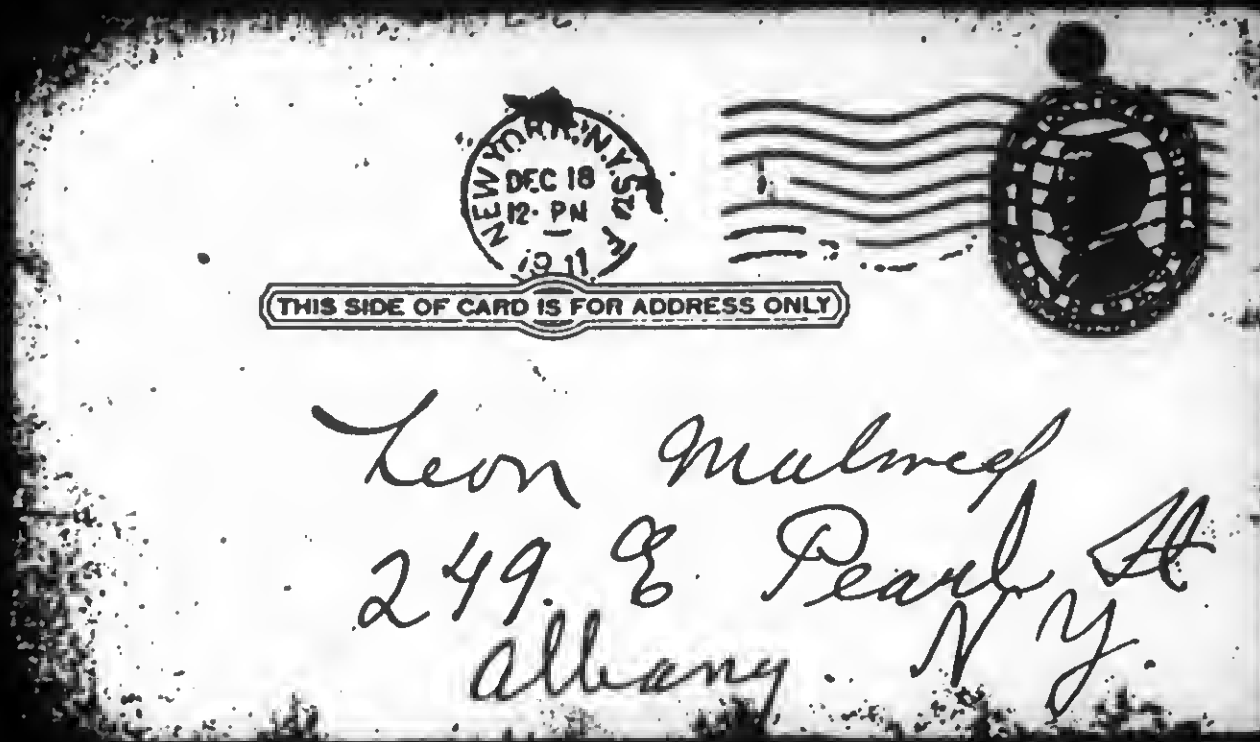 NEW YORK, N.Y. STA F
DEC 18
12- PM
1911
THIS SIDE OF CARD IS FOR ADDRESS ONLY
Leon Malmed
249. E. Pearl St
Albany. N Y.